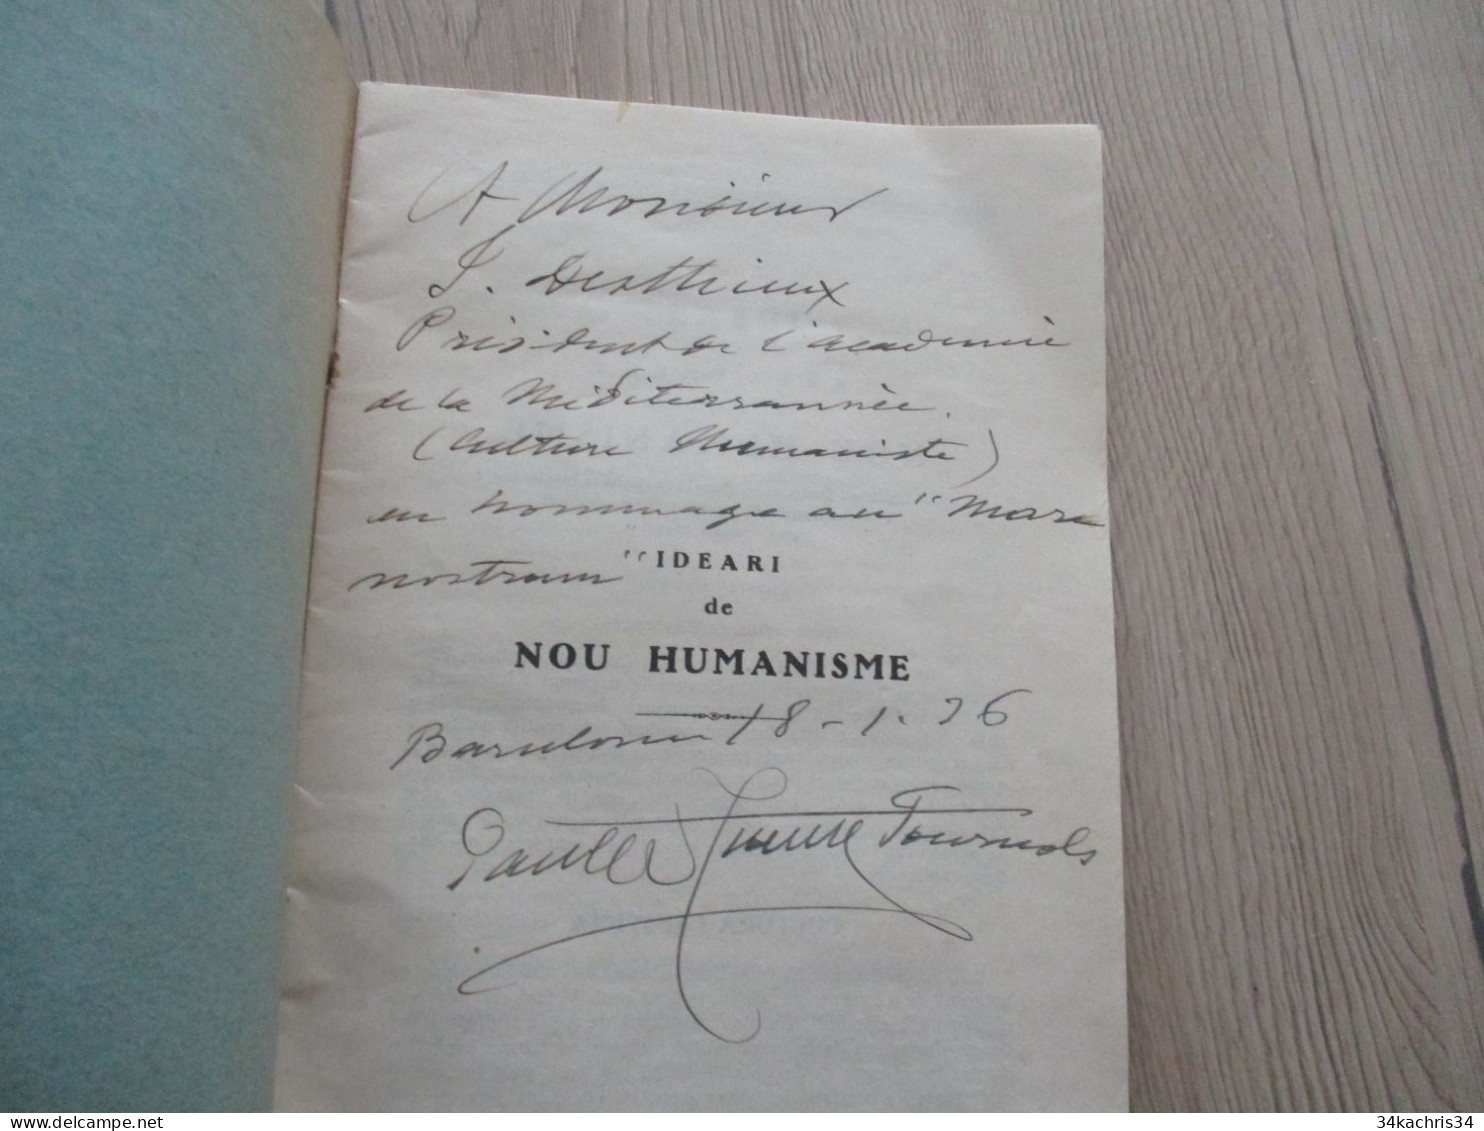 A Monsieur
J. Desthieux
Président de l'academie
de la Méditerrannée.
(Culture Humaniste)
en hommage au "Mare
nostrum"
IDEARI
de
NOU HUMANISME
Barcelone 18-1.36
Tournols
delcampe.net
34kachris34